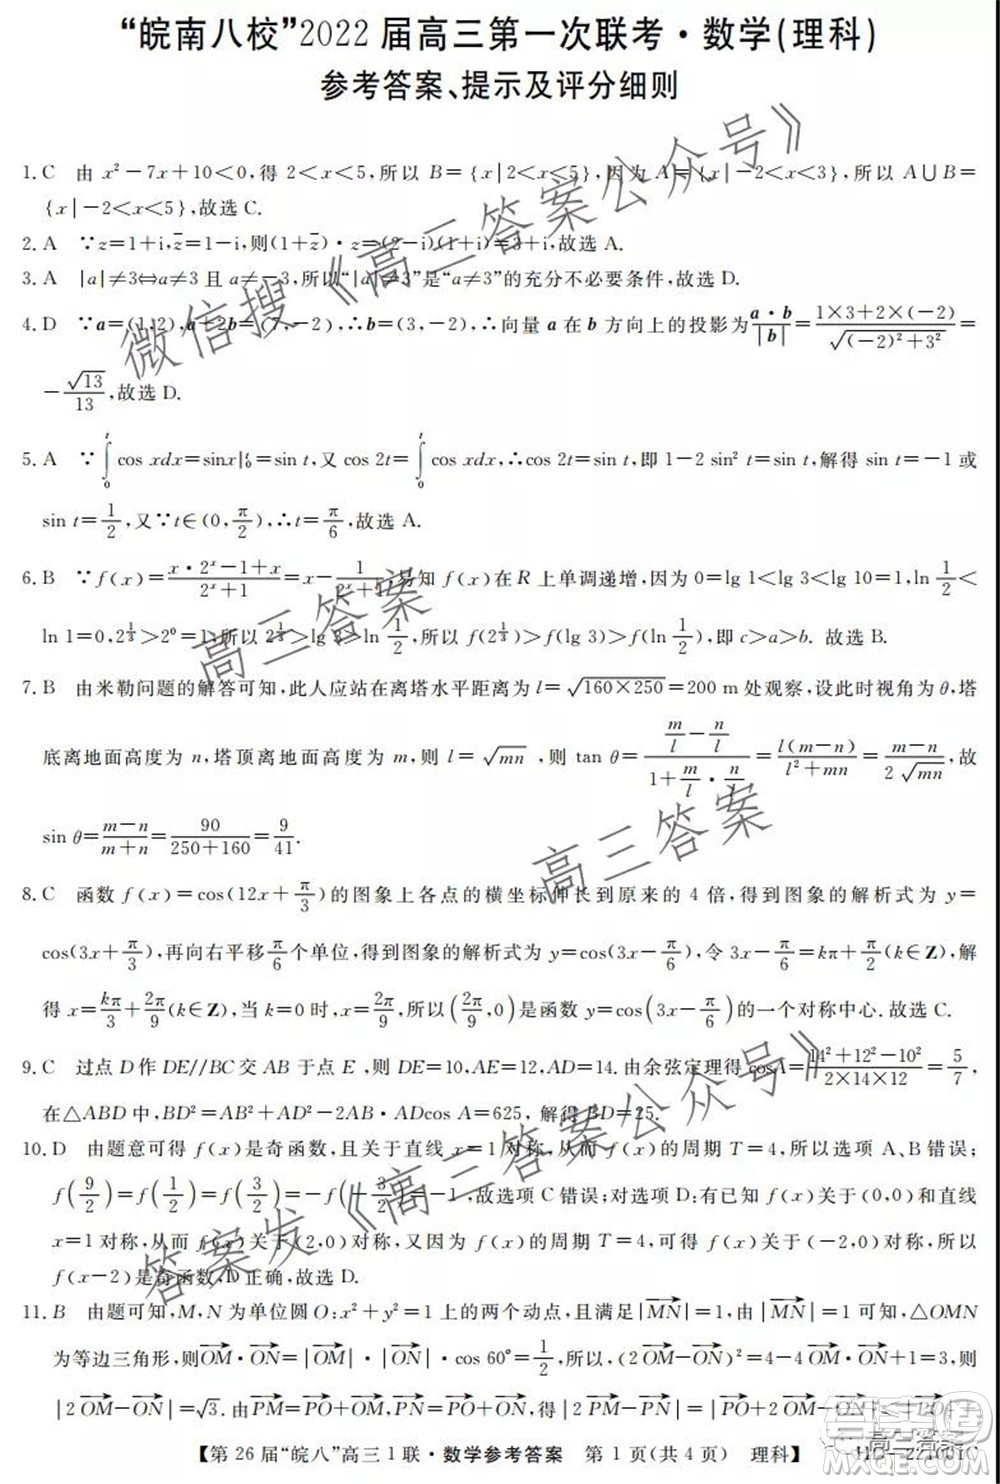 “皖南八校”2022届高三第一次联考·数学(理科)
参考答案、提示及评分细则
1.C 由 x²－7x＋10＜0,得 2＜x＜5,所以 B＝{x|2＜x＜5},因为 A＝{x|－2＜x＜3},所以 A∪B＝
{x|－2＜x＜5},故选 C.
2.A ∵z＝1＋i,z̄＝1－i,则(1＋z̄)·z＝(2－i)(1＋i)＝3＋i,故选 A.
3.A |a|≠3⇔a≠3 且 a≠－3,所以“|a|≠3”是“a≠3”的充分不必要条件,故选 D.
4.D ∵a＝(1,2),a＋2b＝(7,－2),∴b＝(3,－2),∴向量 a 在 b 方向上的投影为 a·b/|b|＝(1×3＋2×(－2))/√((－2)²＋3²)＝
－√13/13,故选 D.
5.A ∵∫₀ᵗcos xdx＝sinx|₀ᵗ＝sin t,又 cos 2t＝∫₀ᵗcos xdx,∴cos 2t＝sin t,即 1－2 sin² t＝sin t,解得 sin t＝－1 或
sin t＝1/2,又∵t∈(0,π/2),∴t＝π/6,故选 A.
6.B ∵f(x)＝(x·2ˣ－1＋x)/(2ˣ＋1)＝x－1/(2ˣ＋1),易知 f(x)在 R 上单调递增,因为 0＝lg 1＜lg 3＜1,ln 1/2＜
ln 1＝0,2^(1/3)＞2⁰＝1,所以 2^(1/3)＞lg 3＞ln 1/2,所以 f(2^(1/3))＞f(lg 3)＞f(ln 1/2),即 c＞a＞b. 故选 B.
7.B 由米勒问题的解答可知,此人应站在离塔水平距离为 l＝√(160×250)＝200 m 处观察,设此时视角为 θ,塔
底离地面高度为 n,塔顶离地面高度为 m,则 l＝√(mn),则 tan θ＝(m/l－n/l)/(1＋m/l·n/l)＝l(m－n)/(l²＋mn)＝(m－n)/(2√(mn)),故
sin θ＝(m－n)/(m＋n)＝90/(250＋160)＝9/41.
8.C 函数 f(x)＝cos(12x＋π/3)的图象上各点的横坐标伸长到原来的 4 倍,得到图象的解析式为 y＝
cos(3x＋π/3),再向右平移 π/6 个单位,得到图象的解析式为 y＝cos(3x－π/6),令 3x－π/6＝kπ＋π/2(k∈Z),解
得 x＝kπ/3＋2π/9(k∈Z),当 k＝0 时,x＝2π/9,所以(2π/9,0)是函数 y＝cos(3x－π/6)的一个对称中心.故选 C.
9.C 过点 D 作 DE//BC 交 AB 于点 E,则 DE＝10,AE＝12,AD＝14.由余弦定理得 cosA＝(14²＋12²－10²)/(2×14×12)＝5/7,
在△ABD 中,BD²＝AB²＋AD²－2AB·ADcos A＝625,解得 BD＝25.
10.D 由题意可得 f(x)是奇函数,且关于直线 x＝1 对称,从而 f(x)的周期 T＝4,所以选项 A、B 错误;
f(9/2)＝f(1/2)＝f(3/2)＝－f(－3/2)＝－1,故选项 C 错误;对选项 D:有已知 f(x)关于(0,0)和直线
x＝1 对称,从而 f(x)关于(2,0)对称,又因为 f(x)的周期 T＝4,所以 f(x)关于(－2,0)对称,所以
f(x－2)是奇函数,D 正确,故选 D.
11.B 由题可知,M,N 为单位圆 O:x²＋y²＝1 上的两个动点,且满足|MN→|＝1,由|MN→|＝1 可知,△OMN
为等边三角形,则OM→·ON→＝|OM→|·|ON→|·cos 60°＝1/2,所以(2 OM→－ON→)²＝4－4 OM→·ON→＋1＝3,则
|2 OM→－ON→|＝√3.由PM→＝PO→＋OM→,PN→＝PO→＋ON→,所以|2 PM→－PN→|＝|PO→＋
【第 26 届“皖八”高三 1 联·数学参考答案 第 1 页(共 4 页) 理科】
微信搜《高三答案公众号》
高三答案
高三答案
答案发《高三答案公众号》